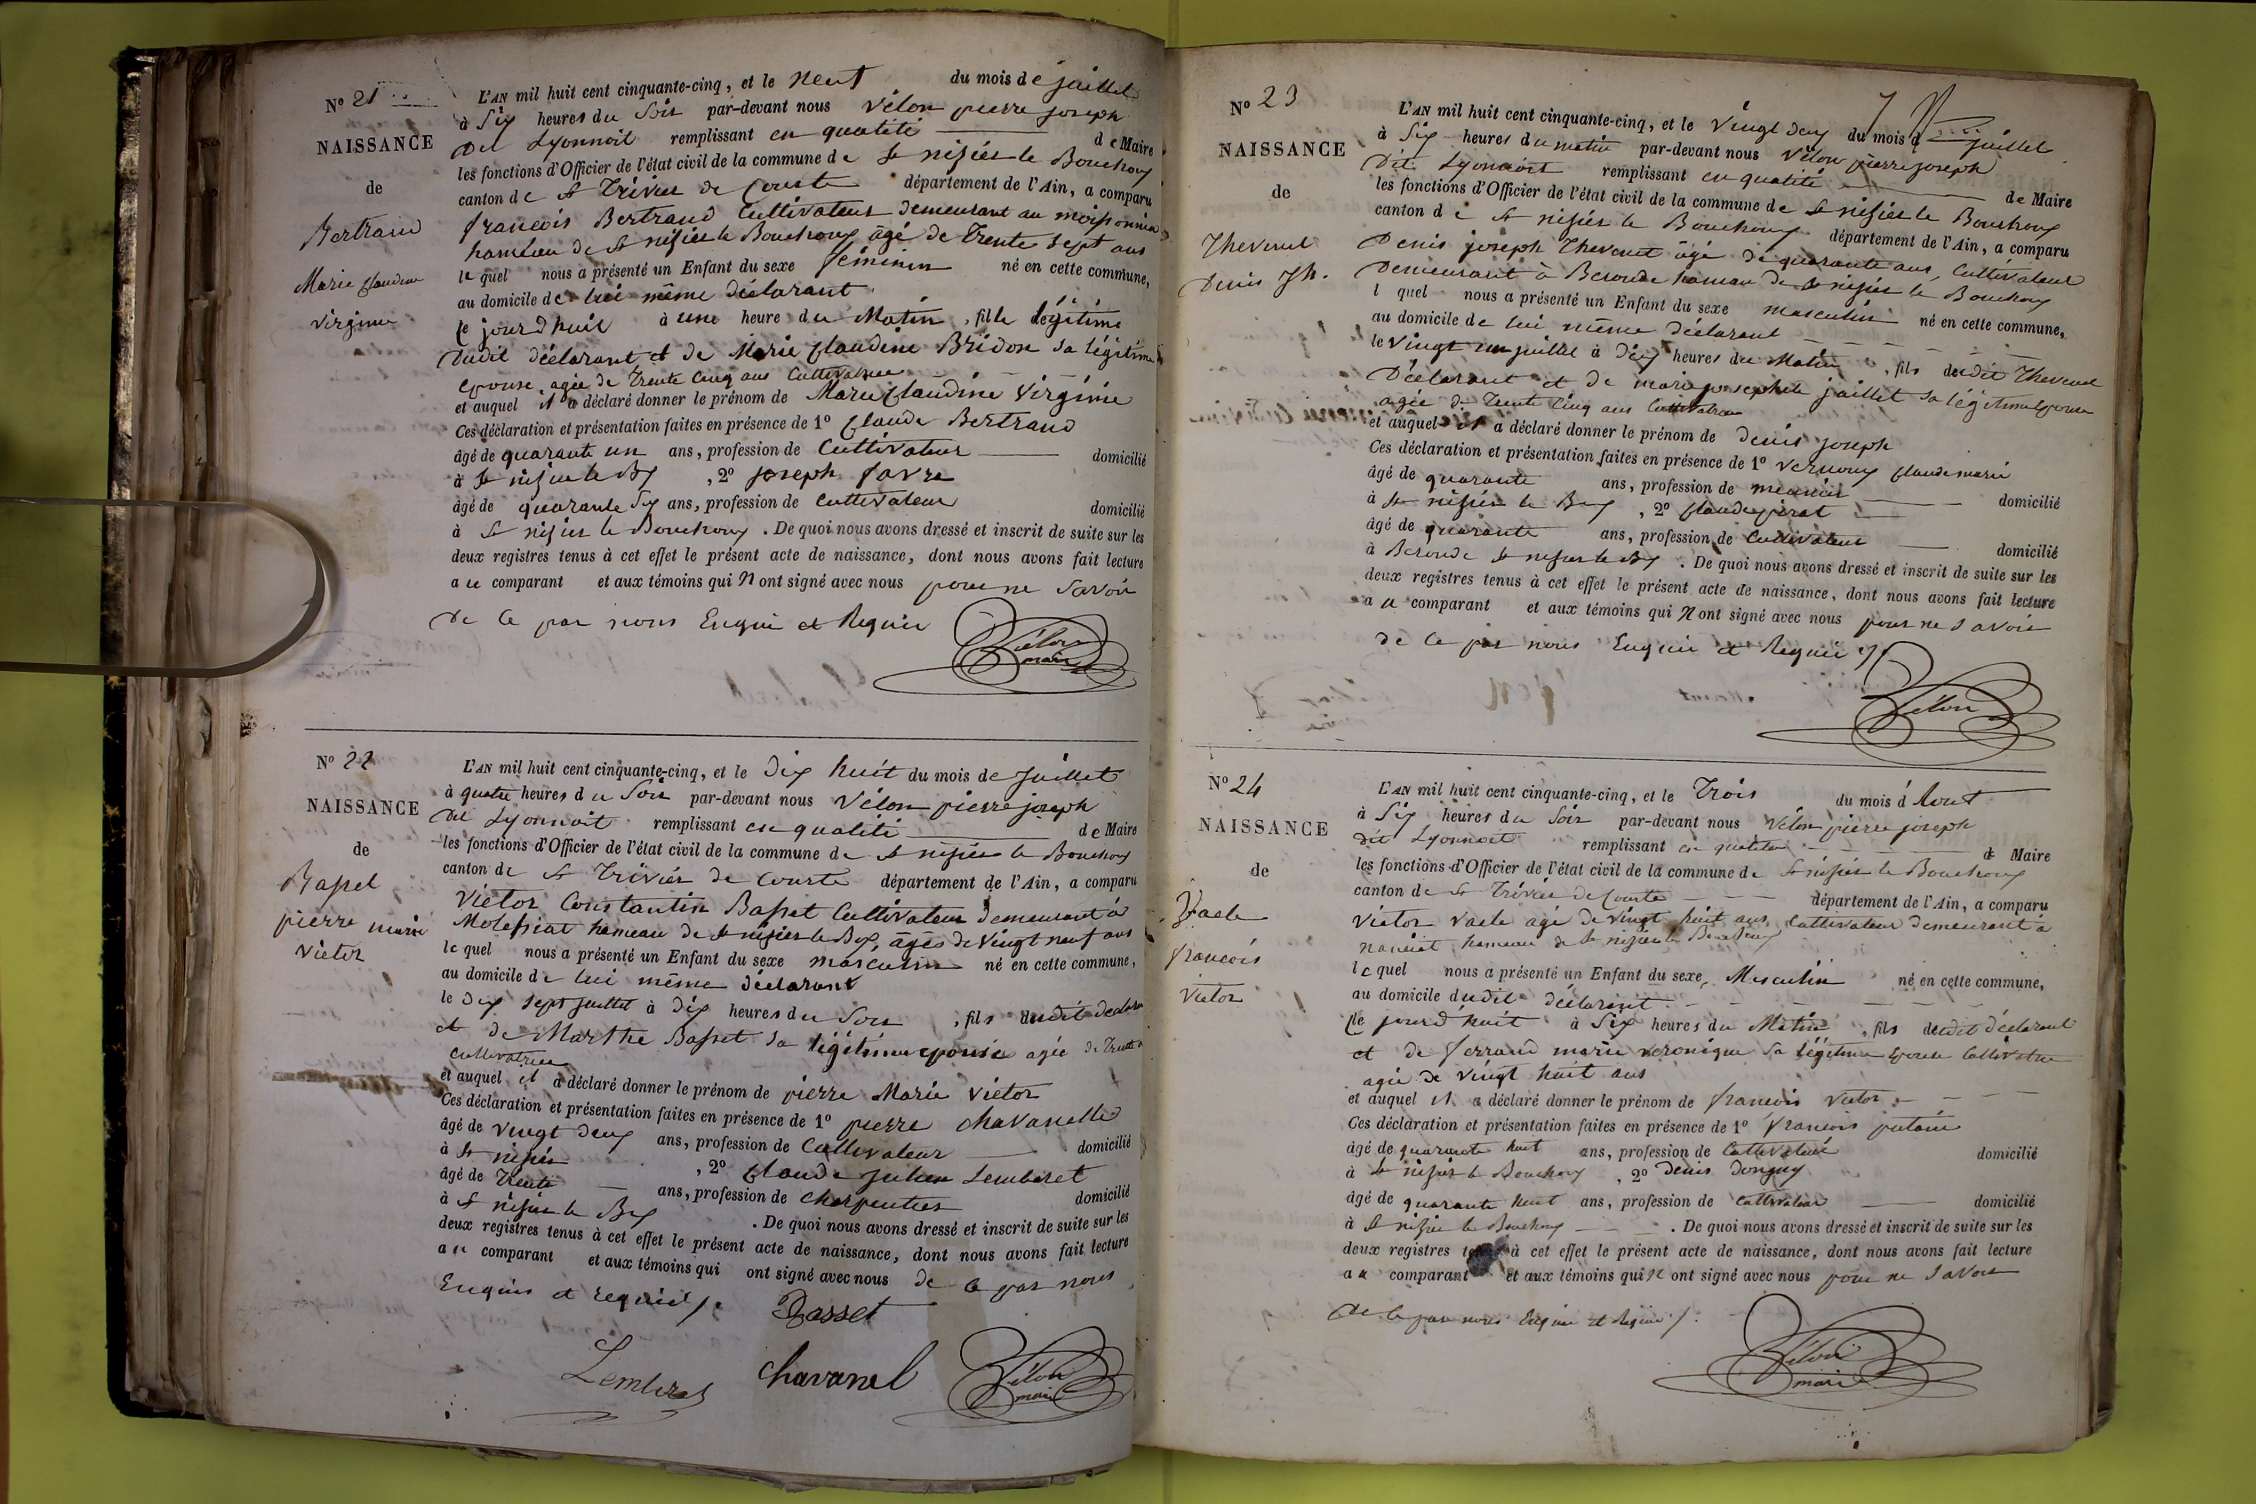 N° 21
NAISSANCE
de
Bertrand
Marie Claudine
virginie
L'AN mil huit cent cinquante-cinq, et le neuf du mois de juillet
à Six heures du Soir par-devant nous Vélon pierre joseph
dit Lyonnoit remplissant en qualité de Maire
les fonctions d'Officier de l'état civil de la commune de St nizier le Bouchoux
canton de St Trivier de Courte département de l'Ain, a comparu
francois Bertrand Cultivateur demeurant au
hameau de St nizier le Bouchoux âgé de trente sept ans
lequel nous a présenté un Enfant du sexe féminin né en cette commune,
au domicile de lui même déclarant
le jourdhuit à une heure du Matin, fille légitime
dudit déclarant et de Marie Claudine Bridon sa légitime
epouse agée de trente cinq ans Cultivatrice
et auquel il a déclaré donner le prénom de Marie Claudine Virginie
Ces déclaration et présentation faites en présence de 1° Claude Bertrand
âgé de quarante un ans, profession de Cultivateur domicilié
à St nizier le Bx, 2° joseph favre
âgé de quarante Six ans, profession de Cultivateur domicilié
à St nizier le Bouchoux. De quoi nous avons dressé et inscrit de suite sur les
deux registres tenus à cet effet le présent acte de naissance, dont nous avons fait lecture
au comparant et aux témoins qui n ont signé avec nous pour ne Savoir
de ce par nous Enquis et Requis
Vélon
maire
N° 22
NAISSANCE
de
Basset
pierre marie
victor
L'AN mil huit cent cinquante-cinq, et le dix huit du mois de juillet
à quatre heures du Soir par-devant nous Vélon pierre joseph
dit Lyonnoit remplissant en qualité de Maire
les fonctions d'Officier de l'état civil de la commune de St nizier le Bouchoux
canton de St Trivier de Courte département de l'Ain, a comparu
Victor Constantin Basset Cultivateur demeurant à
Molefsiat hameau de St nizier le Bx, âgés de vingt neuf ans
lequel nous a présenté un Enfant du sexe masculin né en cette commune,
au domicile de lui même déclarant
le dix sept juillet à dix heures du Soir, fils dudit
et de Marthe Basset sa légitime epouse agée de
Cultivatrice
et auquel il a déclaré donner le prénom de pierre Marie victor
Ces déclaration et présentation faites en présence de 1° pierre chavanelle
âgé de vingt deux ans, profession de Cultivateur domicilié
à St nizier, 2° Claude julien Lemberet
âgé de trente ans, profession de charpentier domicilié
à St nizier le Bx. De quoi nous avons dressé et inscrit de suite sur les
deux registres tenus à cet effet le présent acte de naissance, dont nous avons fait lecture
au comparant et aux témoins qui ont signé avec nous de ce par nous
Enquis et requis
Basset
Lemberet chavanel Vélon
maire
7
N° 23
NAISSANCE
de
Thevenet
Denis Jh.
L'AN mil huit cent cinquante-cinq, et le vingt deux du mois d juillet
à Six heures du matin par-devant nous Vélon pierre joseph
dit Lyonnoit remplissant en qualité de Maire
les fonctions d'Officier de l'état civil de la commune de St nizier le Bouchoux
canton de St nizier le Bouchoux département de l'Ain, a comparu
Denis joseph Thevenet âgé de quarante ans, Cultivateur
demeurant à Beronde hameau de St nizier le Bouchoux
l quel nous a présenté un Enfant du sexe masculin né en cette commune,
au domicile de lui même déclarant
le vingt un juillet à dix heures du Matin, fils dudit Thevenet
Déclarant et de marie josephete jaillet sa légitime Epouse
agée de trente cinq ans Cultivatrice
et auquel il a déclaré donner le prénom de denis joseph
Ces déclaration et présentation faites en présence de 1° vernoux Claude marie
âgé de quarante ans, profession de meunier domicilié
à St nizier le Bx, 2° Claude pirat
âgé de quarante ans, profession de Cultivateur domicilié
à Beronde St nizier le Bx. De quoi nous avons dressé et inscrit de suite sur les
deux registres tenus à cet effet le présent acte de naissance, dont nous avons fait lecture
au comparant et aux témoins qui n ont signé avec nous pour ne Savoir
de ce par nous Enquis et Requis
Vélon
N° 24
NAISSANCE
de
Vacle
francois
Victor
L'AN mil huit cent cinquante-cinq, et le Trois du mois d'Aout
à Six heures du Soir par-devant nous Vélon pierre joseph
dit Lyonnoit remplissant en qualité de Maire
les fonctions d'Officier de l'état civil de la commune de St nizier le Bouchoux
canton de St Trivier de Courte département de l'Ain, a comparu
Victor Vacle agé de vingt huit ans Cultivateur demeurant à
hameau de St nizier le Bouchoux
lequel nous a présenté un Enfant du sexe Masculin né en cette commune,
au domicile dudit déclarant
le jourd'huit à Six heures du Matin, fils dudit déclarant
et de ferrand marie veronique sa légitime Epouse Cultivatrice
agée de vingt huit ans
et auquel il a déclaré donner le prénom de francois victor
Ces déclaration et présentation faites en présence de 1° francois
âgé de quarante huit ans, profession de Cultivateur domicilié
à St nizier le Bouchoux, 2° Denis Donguy
âgé de quarante huit ans, profession de Cultivateur domicilié
à St nizier le Bouchoux. De quoi nous avons dressé et inscrit de suite sur les
deux registres à cet effet le présent acte de naissance, dont nous avons fait lecture
au comparant et aux témoins qui n ont signé avec nous pour ne Savoir
de ce par nous Enquis et Requis
Vélon
maire